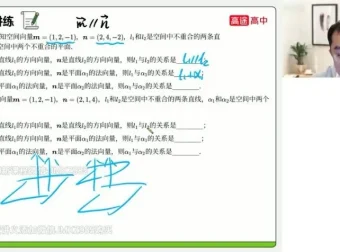 讲练 m // n 高途 高中
知空间向量m = (1,2,−1), n = (2,4,−2), l₁和l₂是空间中不重合的两条直
空间中两个不重合的平面.
直线l₁的方向向量, n是直线l₂的方向向量, 则l₁与l₂的关系是 l₁//l₂
直线l₁的方向向量, n是平面α₁的法向量, 则l₁与α₁的关系是 l₁⊥α₁
平面α₁的法向量, n是平面α₂的法向量, 则α₁与α₂的关系是
向量m = (1,2,−1), n = (2,1,4), l₁和l₂是空间中不重合的两条直线, α₁和α₂是空间中两个
直线l₁的方向向量, n是直线l₂的方向向量, 则l₁与l₂的关系是________;
直线l₁的方向向量, n是平面α₁的法向量, 则l₁与α₁的关系是________;
平面α₁的法向量, n是平面α₂的法向量, 则α₁与α₂的关系是________.